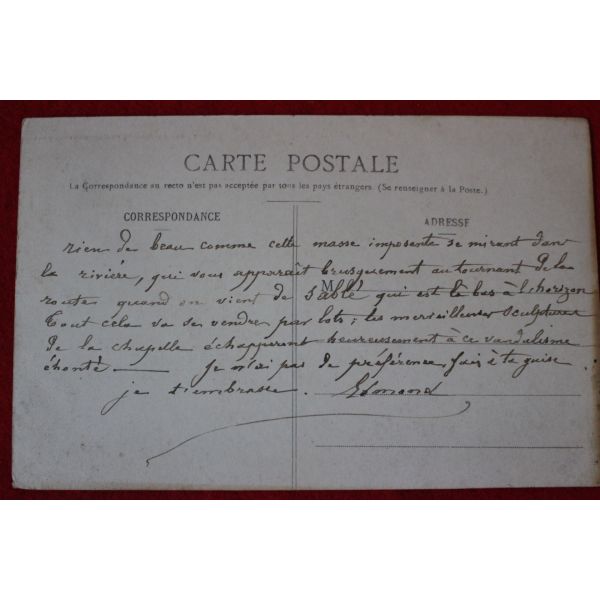 CARTE POSTALE
La Correspondance au recto n'est pas acceptée par tous les pays étrangers. (Se renseigner à la Poste.)
CORRESPONDANCE
ADRESSE
rien de beau comme cette masse imposante se mirant dans
la rivière, qui vous apparaît brusquement au tournant de la
M
route quand on vient de Sablé qui est là bas à l'horizon
Tout cela va se vendre par lots; les merveilleuses sculptures
de la chapelle échapperont heureusement à ce vandalisme
éhonté — Je n'ai pas de préférence, fais à ta guise
je t'embrasse. Edmond